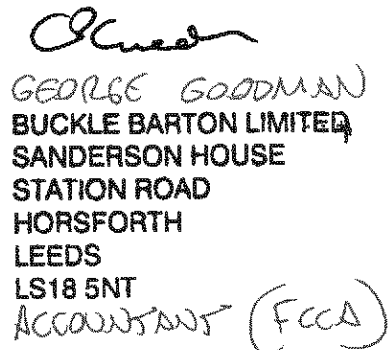 GEORGE GOODMAN
BUCKLE BARTON LIMITED
SANDERSON HOUSE
STATION ROAD
HORSFORTH
LEEDS
LS18 5NT
ACCOUNTANT (FCCA)